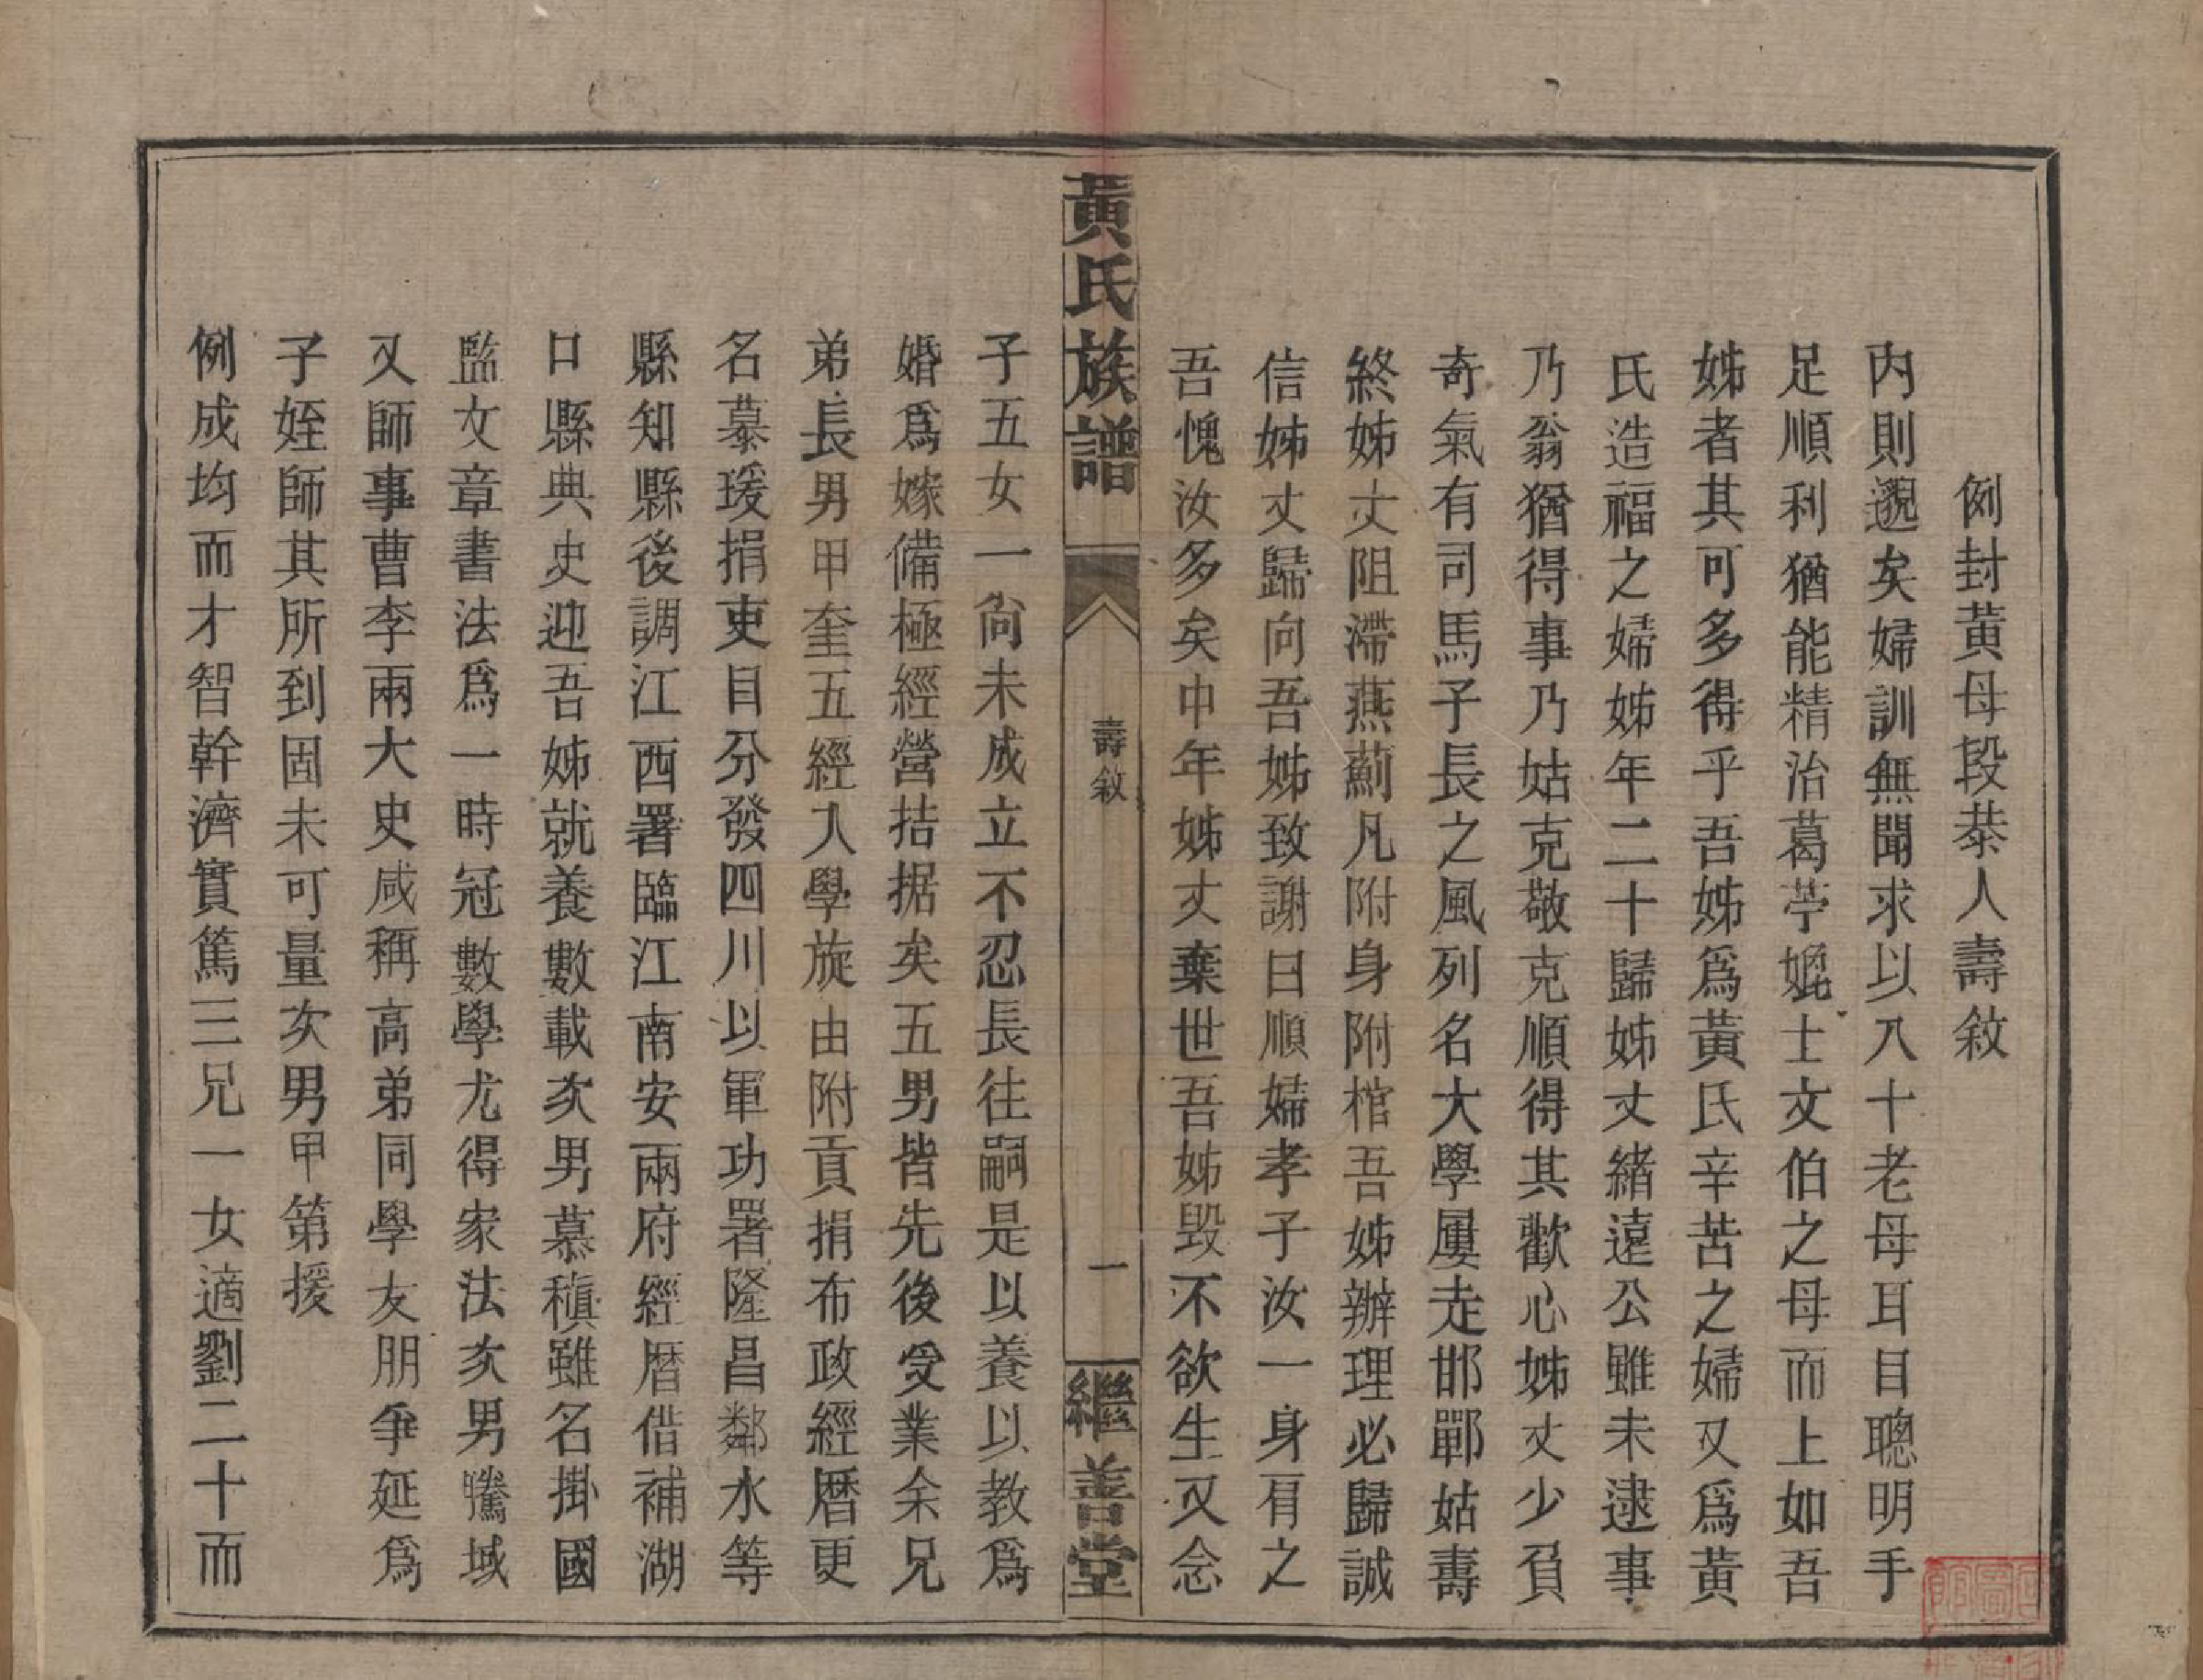 例封黄母段恭人壽敘
内則邈矣婦訓無聞求以八十老母耳目聰明手
足順利猶能精治葛苧媲士文伯之母而上如吾
姊者其可多得乎吾姊爲黄氏辛苦之婦又爲黄
氏造福之婦姊年二十歸姊丈緒遠公雖未逮事
乃翁猶得事乃姑克敬克順得其歡心姊丈少負
奇氣有司馬子長之風列名大學屢走邯鄲姑壽
終姊丈阻滯燕薊凡附身附棺吾姊辦理必歸誠
信姊丈歸向吾姊致謝曰順婦孝子汝一身有之
吾愧汝多矣中年姊丈棄世吾姊毁不欲生又念
黄氏族譜
壽敘
一
繼善堂
子五女一尙未成立不忍長往嗣是以養以教爲
婚爲嫁備極經營拮据矣五男皆先後受業余兄
弟長男甲奎五經入學旋由附貢捐布政經曆更
名慕瑗捐吏目分發四川以軍功署隆昌鄰水等
縣知縣後調江西署臨江南安兩府經曆借補湖
口縣典史迎吾姊就養數載次男慕稹雖名掛國
監文章書法爲一時冠數學尤得家法次男騰域
又師事曹李兩大史咸稱高弟同學友朋爭延爲
子姪師其所到固未可量次男甲第援
例成均而才智幹濟實篤三兄一女適劉二十而